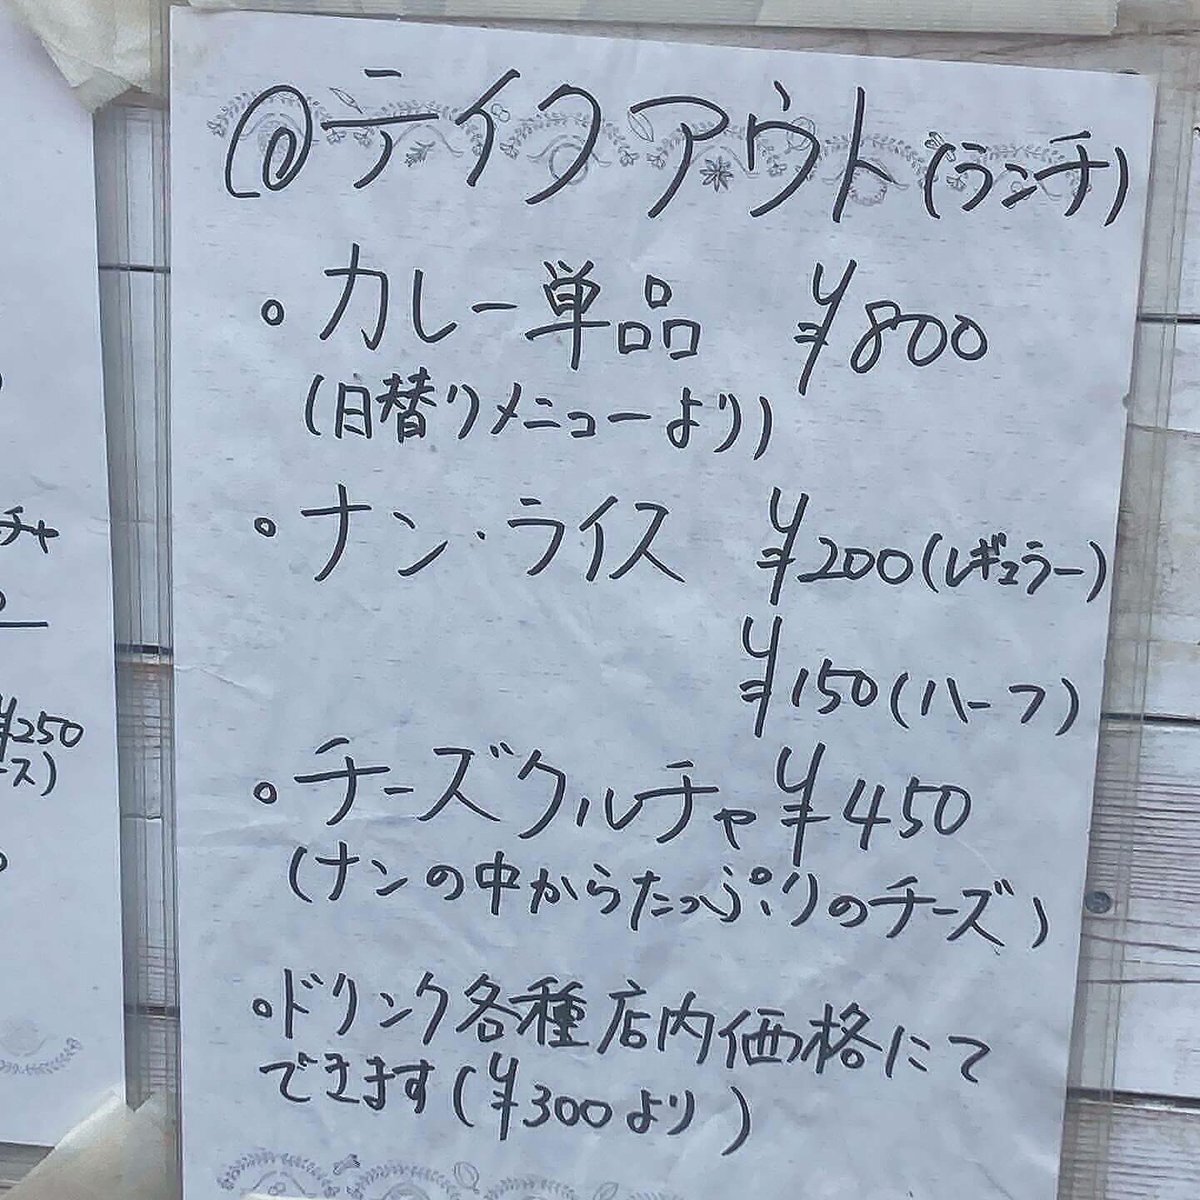 @テイクアウト(ランチ)
・カレー単品 ¥800
(日替りメニューより)
・ナン・ライス ¥200(レギュラー)
¥150(ハーフ)
・チーズクルチャ ¥450
(ナンの中からたっぷりのチーズ)
・ドリンク各種店内価格にて
できます(¥300より)
チャ
¥250
ース)